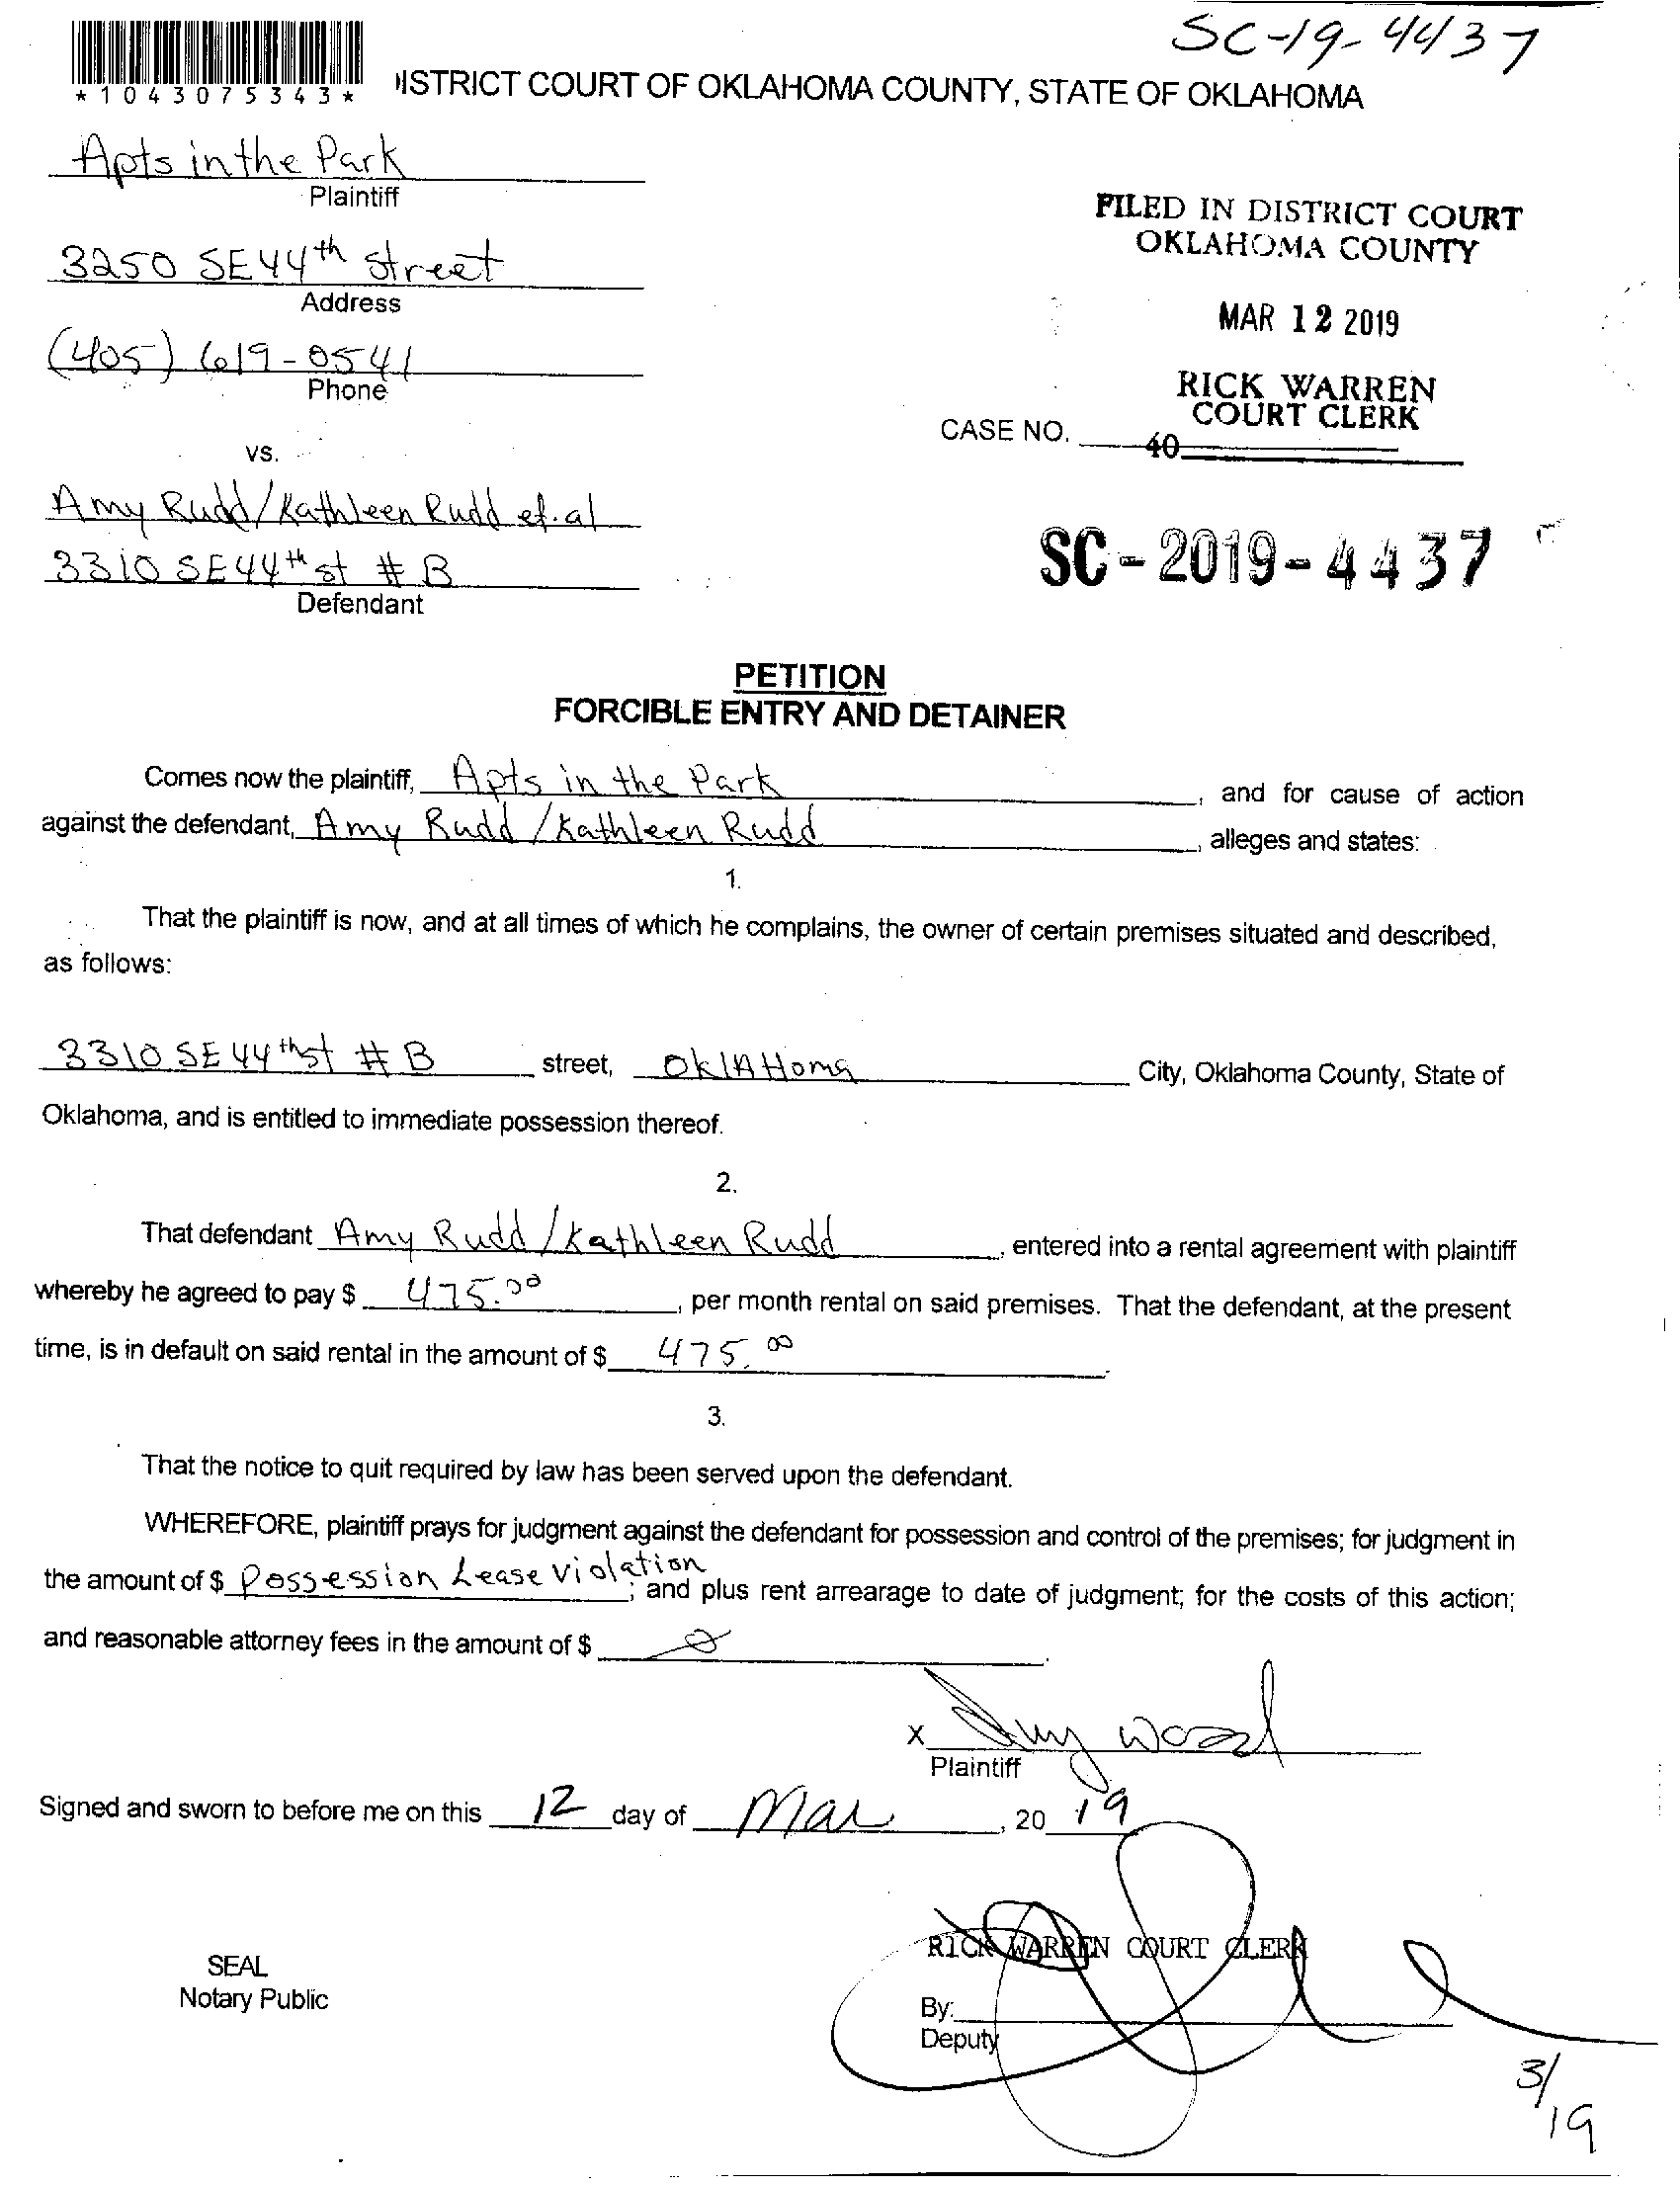 SC-19-4437
*1043075343*
ISTRICT COURT OF OKLAHOMA COUNTY, STATE OF OKLAHOMA
Apts in the Park
Plaintiff
3250 SE 44th Street
Address
(405) 619-0541
Phone
vs.
Amy Rudd/Kathleen Rudd et.al
3310 SE 44th st # B
Defendant
FILED IN DISTRICT COURT
OKLAHOMA COUNTY
MAR 12 2019
RICK WARREN
COURT CLERK
CASE NO. 40
SC-2019-4437
PETITION
FORCIBLE ENTRY AND DETAINER
Comes now the plaintiff, Apts in the Park, and for cause of action
against the defendant, Amy Rudd/Kathleen Rudd, alleges and states:
1.
That the plaintiff is now, and at all times of which he complains, the owner of certain premises situated and described,
as follows:
3310 SE 44th st # B street, OklAHoma City, Oklahoma County, State of
Oklahoma, and is entitled to immediate possession thereof.
2.
That defendant Amy Rudd/Kathleen Rudd, entered into a rental agreement with plaintiff
whereby he agreed to pay $ 475.00, per month rental on said premises. That the defendant, at the present
time, is in default on said rental in the amount of $ 475.00.
3.
That the notice to quit required by law has been served upon the defendant.
WHEREFORE, plaintiff prays for judgment against the defendant for possession and control of the premises; for judgment in
the amount of $ Possession Lease Violation; and plus rent arrearage to date of judgment; for the costs of this action;
and reasonable attorney fees in the amount of $ 0.
X Amy Wood
Plaintiff
Signed and sworn to before me on this 12 day of Mar, 20 19
RICK WARREN COURT CLERK
SEAL
Notary Public
By:
Deputy
3/19